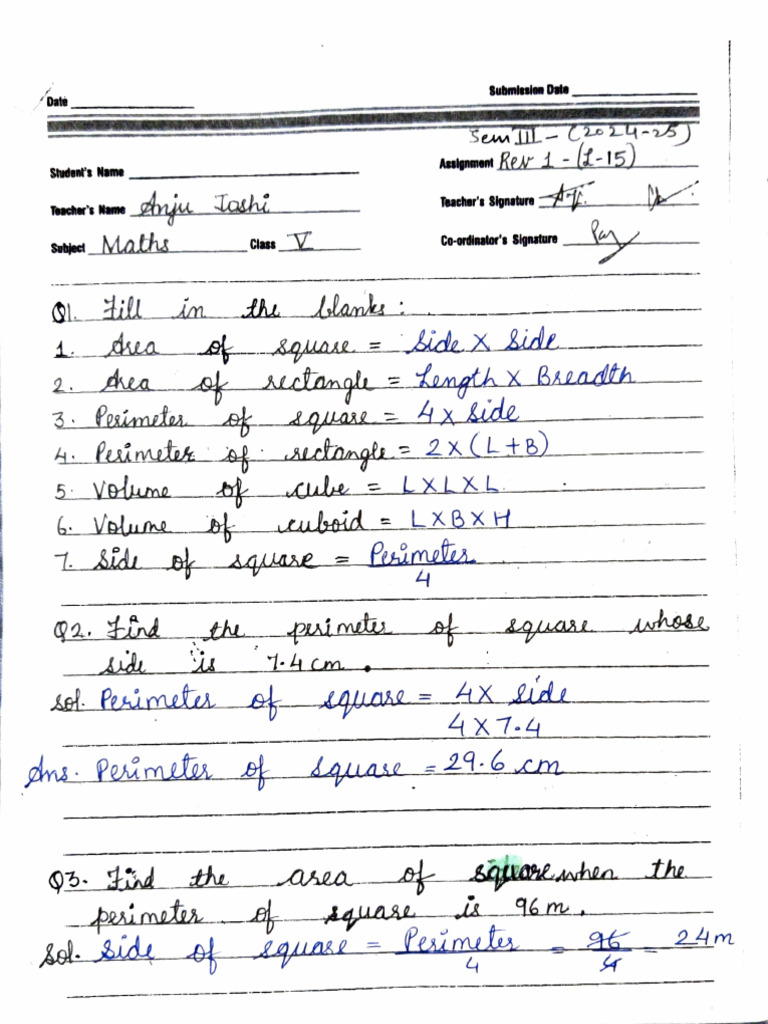 Submission Date
Date
Sem III - (2024-25)
Student's Name
Assignment Rev 1 - (L-15)
Teacher's Name Anju Joshi
Teacher's Signature
Subject Maths Class V
Co-ordinator's Signature
Q1. Fill in the blanks :
1. Area of square = Side X Side
2. Area of rectangle = Length X Breadth
3. Perimeter of square = 4 X Side
4. Perimeter of rectangle = 2 X (L + B)
5. Volume of cube = L X L X L
6. Volume of cuboid = L X B X H
7. Side of square = Perimeter
4
Q2. Find the perimeter of square whose
side is 7.4 cm.
Sol. Perimeter of square = 4 X Side
4 X 7.4
Ans. Perimeter of square = 29.6 cm
Q3. Find the area of square when the
perimeter of square is 96 m.
Sol. Side of square = Perimeter = 96 = 24 m
4 4